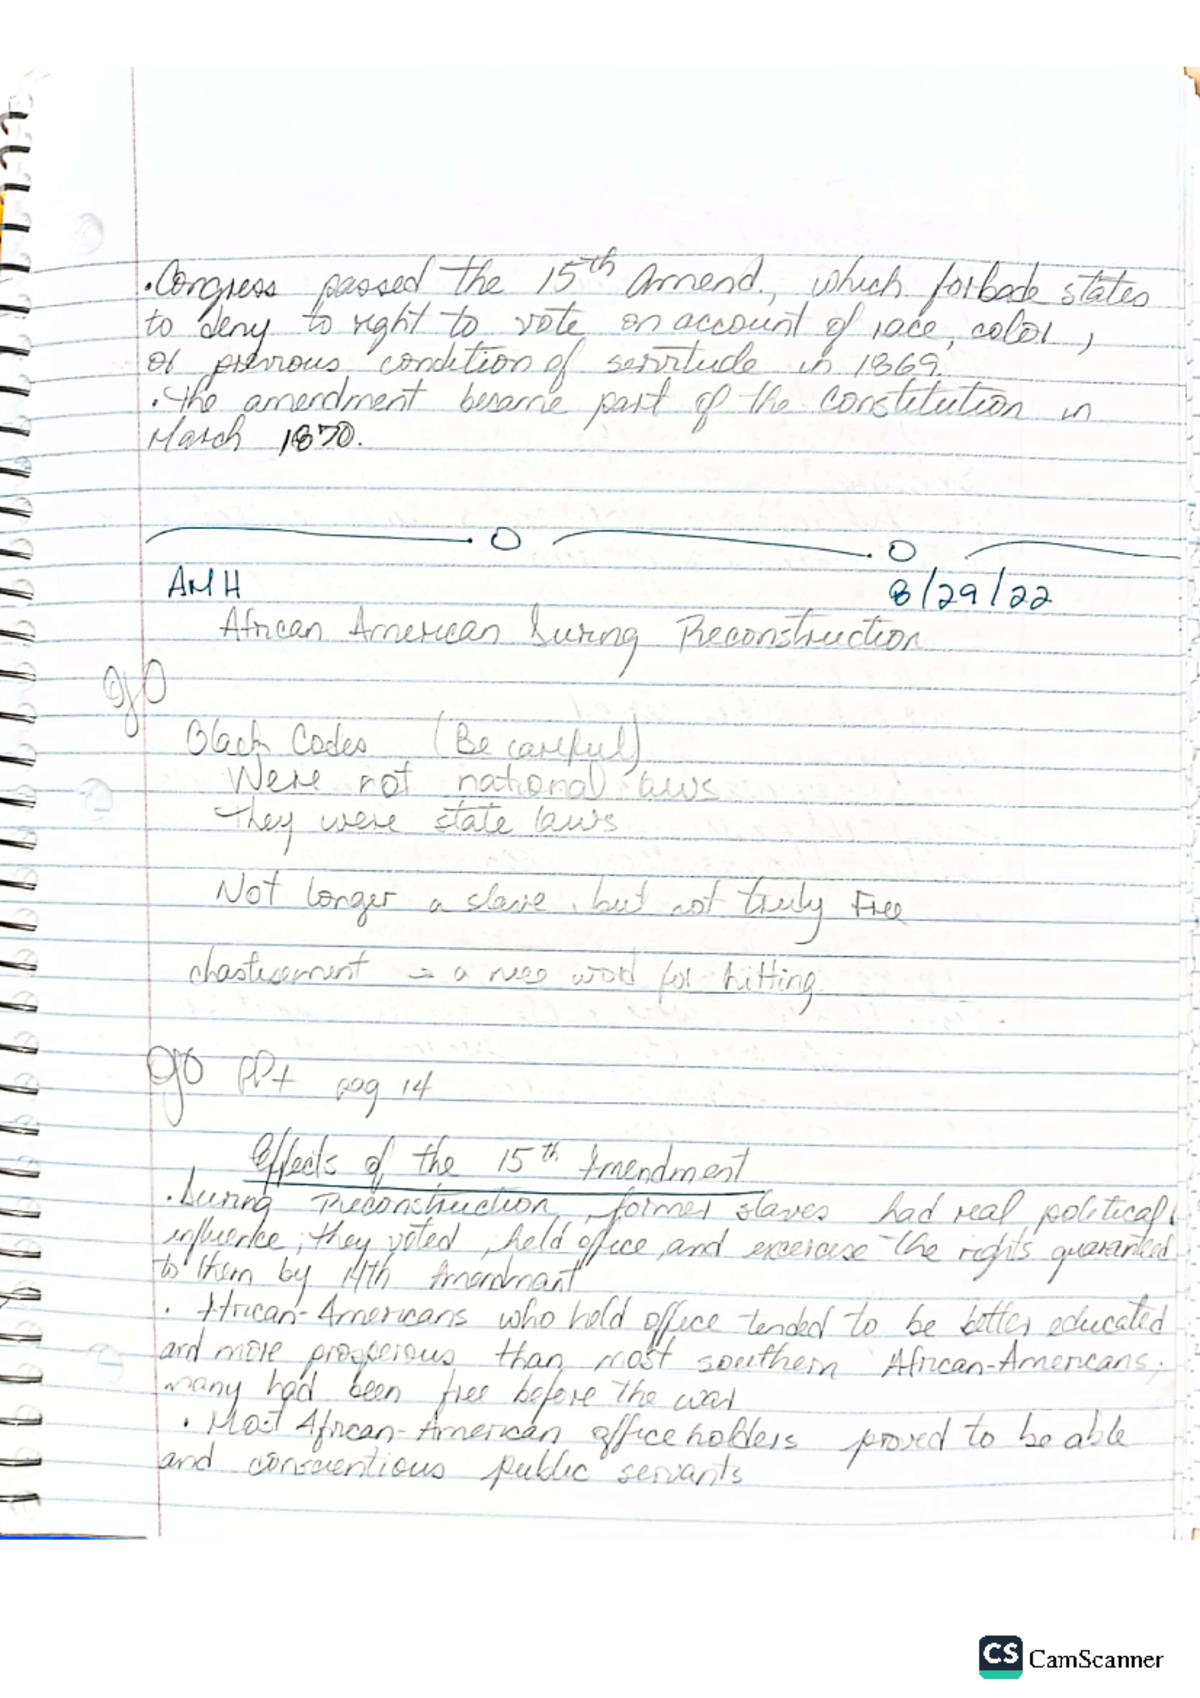 .Congress passed the 15th Amend., which forbade states
to deny to right to vote on account of race, color,
or previous condition of servitude in 1869.
. The amendment became part of the Constitution in
March 1870.
AMH 8/29/22
African American During Reconstruction
ojO
Black Codes (Be careful)
Were not national laws
They were state laws
Not longer a slave, but not truly Free
chastisement → a nice word for hitting
ojo PPt pag 14
Effects of the 15th Amendment
. During Reconstruction, former slaves had real political
influence; they voted, held office, and excercise the rights guaranteed
to them by 14th Amendmant
. African-Americans who held office tended to be better educated
and more prosperous than most southern African-Americans;
many had been free before the war
. Most African-American office holders proved to be able
and conscientious public servants
CS CamScanner